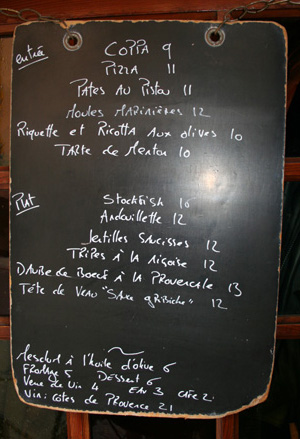 entrée
COPPA 9
PIZZA 11
PATES AU PISTOU 11
MOULES MARINIÈRES 12
RIQUETTE ET RICOTTA AUX OLIVES 10
TARTE DE MENTON 10
Plat
STOCKFISH 16
Andouillette 12
Lentilles SAUCISSES 12
TRIPES À LA NIÇOISE 12
DAUBE DE BOEUF À LA PROVENCALE 13
TÊTE DE VEAU "SAUCE GRIBICHE" 12
Mesclun à l'huile d'olive 6
FROMAGE 5 DESSERT 6
Verre de Vin 4 EAU 3 CAFE 2
Vin: CÔTES DE PROVENCE 21